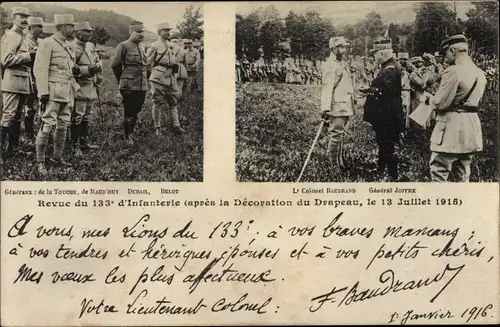 Généraux : de la TOUCHE, de MAUD'HUY DUBAIL, BULOT
Lt Colonel BAUDRAND Général JOFFRE
Revue du 133e d'Infanterie (après la Décoration du Drapeau, le 13 Juillet 1915)
A vous, mes Lions du 133e. à vos braves Mamans ;
à vos tendres et héroïques épouses et à vos petits chéris,
Mes vœux les plus affectueux.
Votre Lieutenant Colonel :
F. Baudrand
1er Janvier 1916.